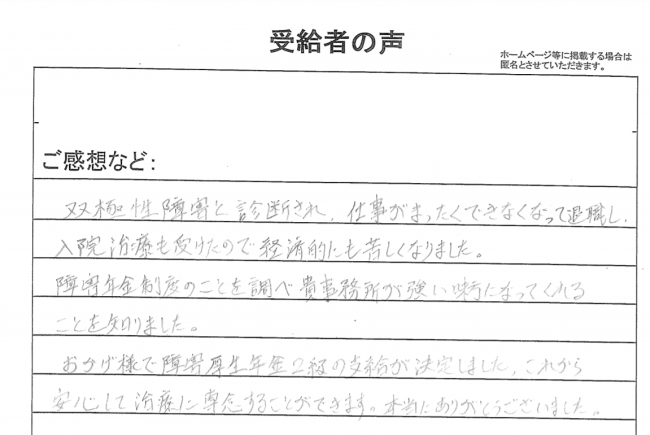 受給者の声
ホームページ等に掲載する場合は
匿名とさせていただきます。
ご感想など：
双極性障害と診断され、仕事がまったくできなくなって退職し、
入院治療も受けたので経済的にも苦しくなりました。
障害年金制度のことを調べ貴事務所が強い味方になってくれる
ことを知りました。
おかげ様で障害厚生年金2級の支給が決定しました。これから
安心して治療に専念することができます。本当にありがとうございました。